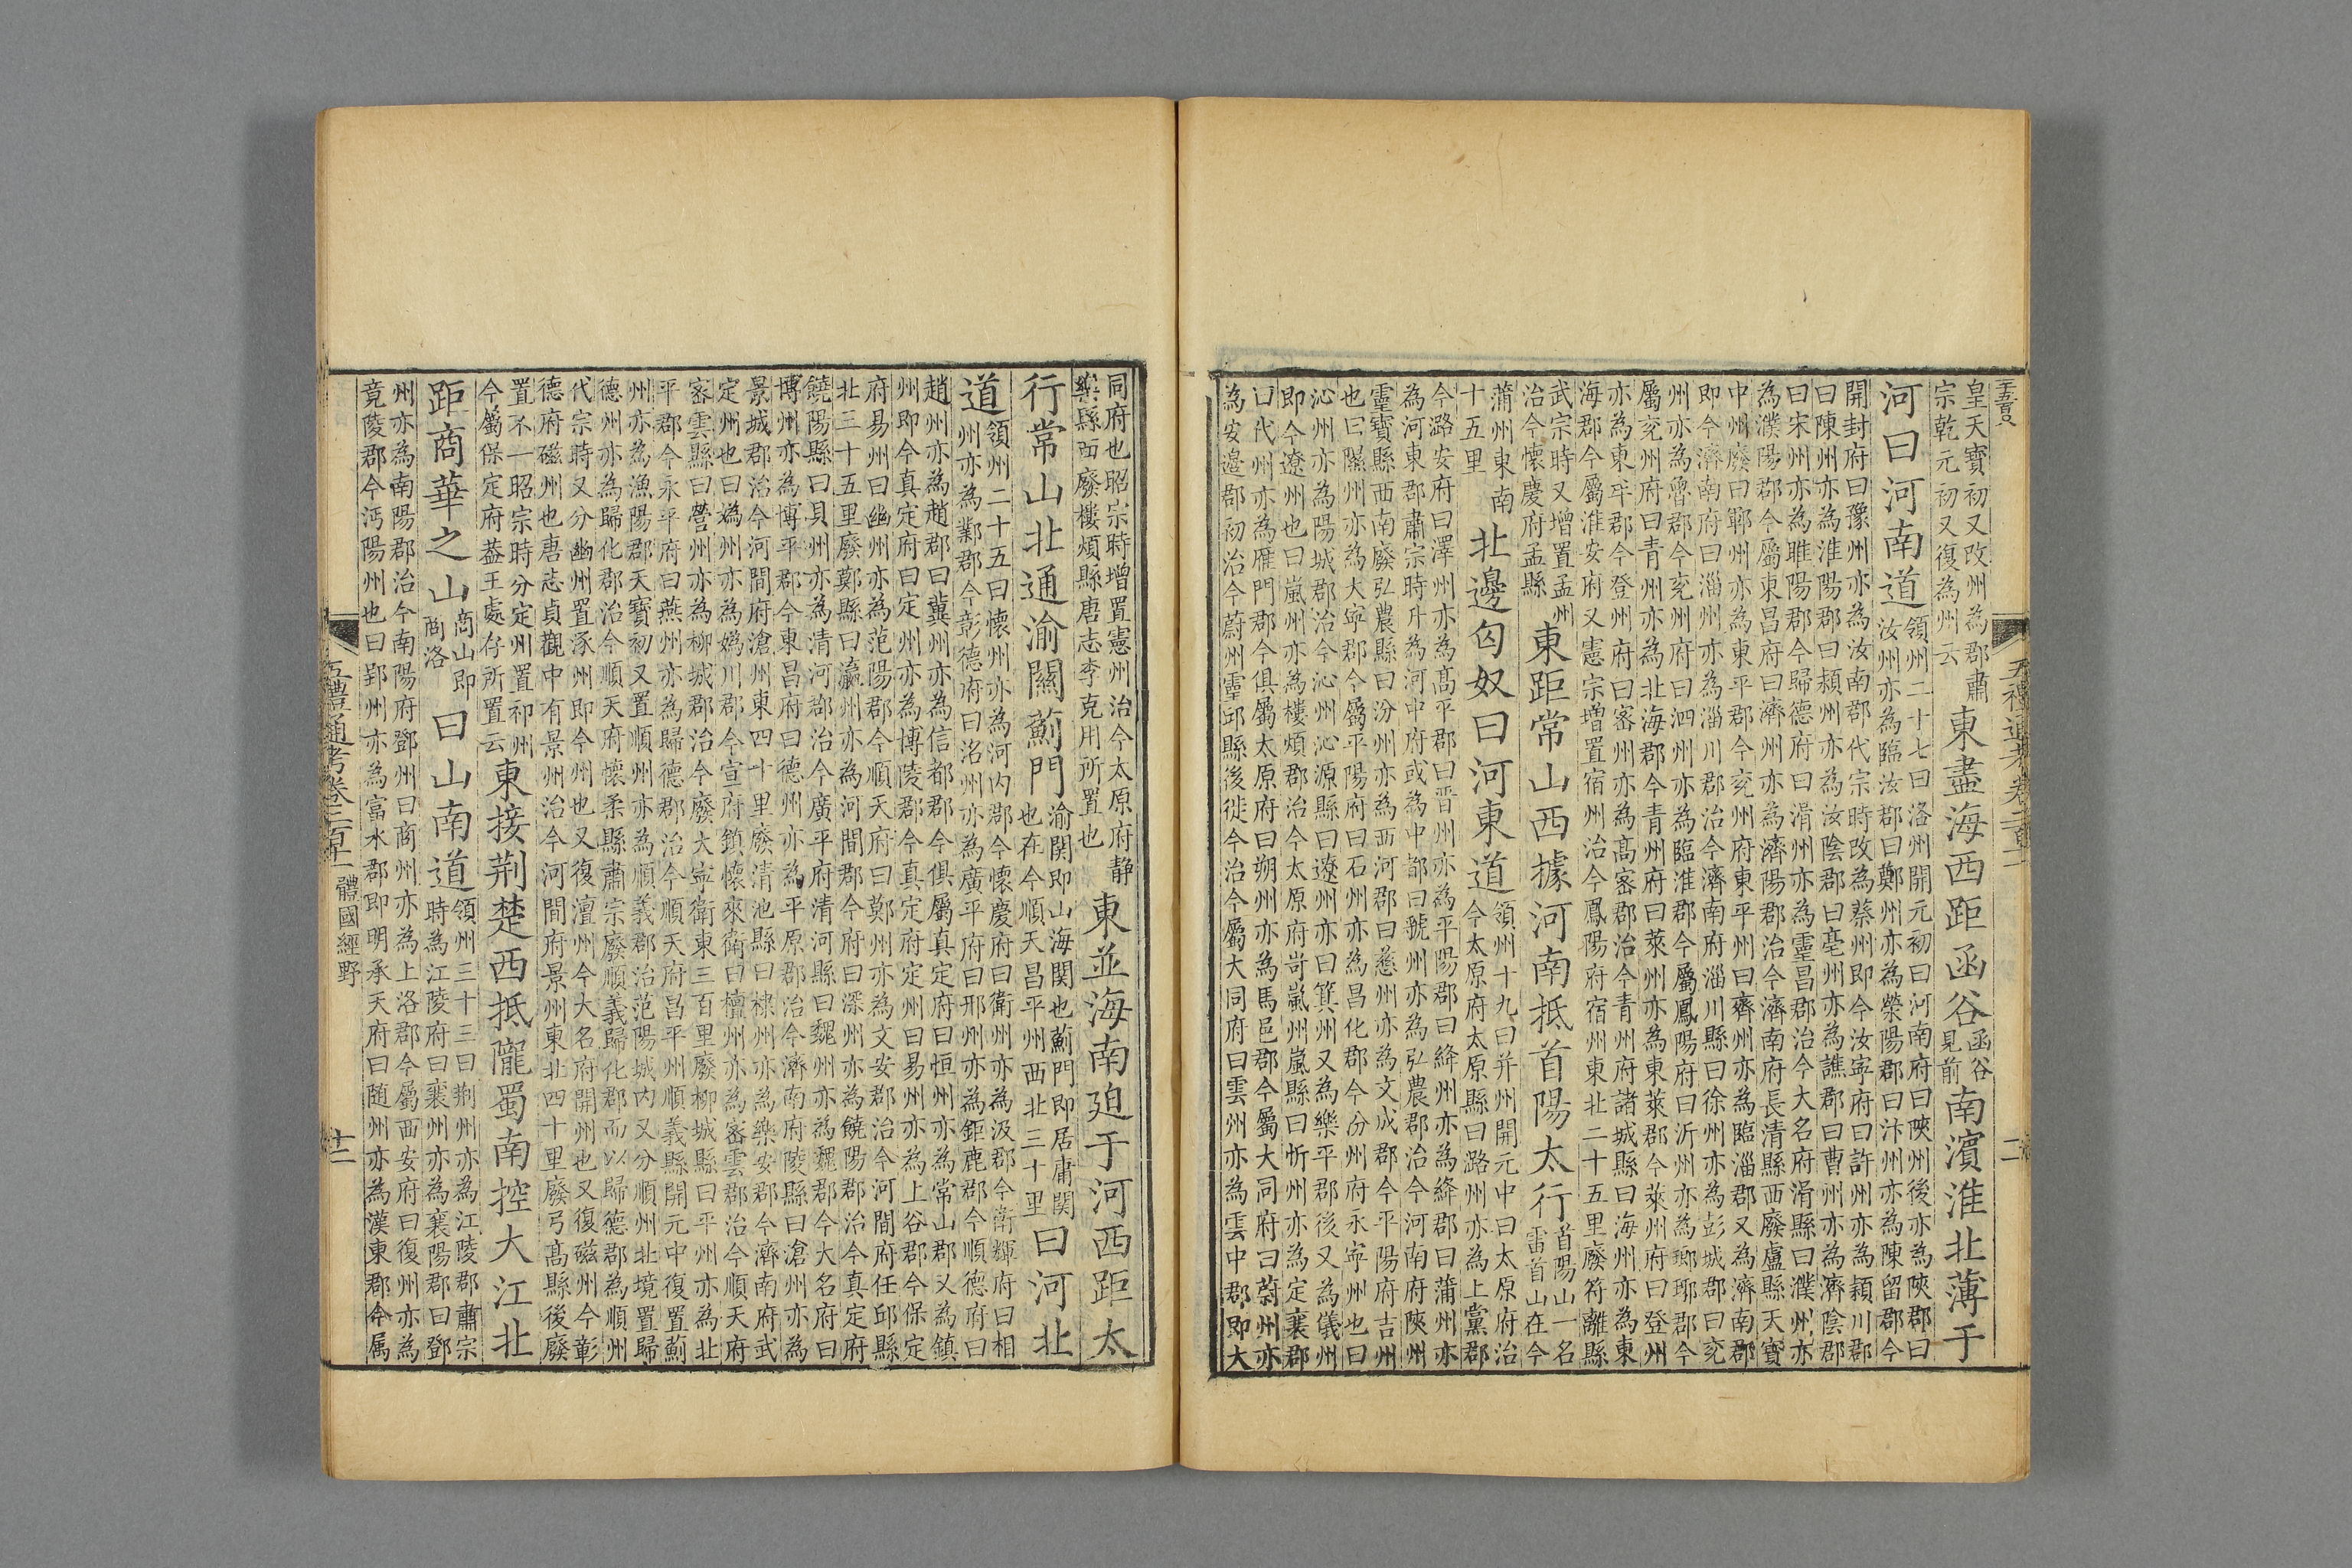 五禮通考卷二百十一
皇天寶初又改州為郡肅
宗乾元初又復為州云
東盡海西距函谷
函谷
見前
南濱淮北薄于
河曰河南道
領州二十七曰洛州開元初曰河南府曰陝州後亦為陝郡曰
汝州亦為臨汝郡曰鄭州亦為滎陽郡曰汴州亦為陳留郡今
開封府曰豫州亦為汝南郡代宗時改為蔡州即今汝寧府曰許州亦為潁川郡
曰陳州亦為淮陽郡曰潁州亦為汝陰郡曰亳州亦為譙郡曰曹州亦為濟陰郡
曰宋州亦為睢陽郡今歸德府曰滑州亦為靈昌郡治今大名府滑縣曰濮州亦
為濮陽郡今屬東昌府曰濟州亦為濟陽郡治今濟南府長清縣西廢盧縣天寶
中州廢曰鄆州亦為東平郡今兗州府東平州曰齊州亦為臨淄郡又為濟南郡
即今濟南府曰淄州亦為淄川郡治今濟南府淄川縣曰徐州亦為彭城郡曰兗
州亦為魯郡今兗州府曰泗州亦為臨淮郡今屬鳳陽府曰沂州亦為瑯琊郡今
屬兗州府曰青州亦為北海郡今青州府曰萊州亦為東萊郡今萊州府曰登州
亦為東牟郡今登州府曰密州亦為高密郡治今青州府諸城縣曰海州亦為東
海郡今屬淮安府又憲宗增置宿州治今鳳陽府宿州東北二十五里廢符離縣
武宗時又增置孟州
治今懷慶府孟縣
東距常山西據河南抵首陽太行
首陽山一名
雷首山在今
蒲州東南
十五里
北邊匈奴曰河東道
領州十九曰并州開元中曰太原府治
今太原府太原縣曰潞州亦為上黨郡
今潞安府曰澤州亦為高平郡曰晉州亦為平陽郡曰絳州亦為絳郡曰蒲州亦
為河東郡肅宗時升為河中府或為中都曰虢州亦為弘農郡治今河南府陝州
靈寶縣西南廢弘農縣曰汾州亦為西河郡曰慈州亦為文成郡今平陽府吉州
也曰隰州亦為大寧郡今屬平陽府曰石州亦為昌化郡今汾州府永寧州也曰
沁州亦為陽城郡治今沁州沁源縣曰遼州亦曰箕州又為樂平郡後又為儀州
即今遼州也曰嵐州亦為樓煩郡治今太原府岢嵐州嵐縣曰忻州亦為定襄郡
曰代州亦為雁門郡今俱屬太原府曰朔州亦為馬邑郡今屬大同府曰蔚州亦
為安邊郡初治今蔚州靈邱縣後徙今治今屬大同府曰雲州亦為雲中郡即大
同府也昭宗時增置憲州治今太原府静
樂縣西廢樓煩縣唐志李克用所置也
東並海南廹于河西距太
行常山北通渝關薊門
渝関即山海関也薊門即居庸関
也在今順天昌平州西北三十里
曰河北
道
領州二十五曰懷州亦為河内郡今懷慶府曰衛州亦為汲郡今衛輝府曰相
州亦為鄴郡今彰德府曰洺州亦為廣平府曰邢州亦為鉅鹿郡今順德府曰
趙州亦為趙郡曰冀州亦為信都郡今俱屬真定府曰恒州亦為常山郡又為鎮
州即今真定府曰定州亦為博陵郡今真定府定州曰易州亦為上谷郡今保定
府易州曰幽州亦為范陽郡今順天府曰鄚州亦為文安郡治今河間府任邱縣
北三十五里廢鄚縣曰瀛州亦為河間郡今府曰深州亦為饒陽郡治今真定府
饒陽縣曰貝州亦為清河郡治今廣平府清河縣曰魏州亦為魏郡今大名府曰
博州亦為博平郡今東昌府曰德州亦為平原郡治今濟南府陵縣曰滄州亦為
景城郡治今河間府滄州東四十里廢清池縣曰棣州亦為樂安郡今濟南府武
定州也曰媯州亦為媯川郡今宣府鎮懷來衛曰檀州亦為密雲郡治今順天府
密雲縣曰營州亦為柳城郡治今廢大寧衛東三百里廢柳城縣曰平州亦為北
平郡今永平府曰燕州亦為歸德郡治今順天府昌平州順義縣開元中復置薊
州亦為漁陽郡天寶初又置順州亦為順義郡治范陽城内又分順州北境置歸
德州亦為歸化郡治今順天府懷柔縣肅宗廢順義歸化郡而以歸德郡為順州
代宗時又分幽州置涿州即今州也又復澶州今大名府開州也又復磁州今彰
德府磁州也唐志貞觀中有景州治今河間府景州東北四十里廢弓高縣後廢
置不一昭宗時分定州置祁州
今屬保定府葢王處存所置云
東接荆楚西抵隴蜀南控大江北
距商華之山
商山即
商洛
曰山南道
領州三十三曰荆州亦為江陵郡肅宗
時為江陵府曰襄州亦為襄陽郡曰鄧
州亦為南陽郡治今南陽府鄧州曰商州亦為上洛郡今屬西安府曰復州亦為
竟陵郡今沔陽州也曰郢州亦為富水郡即明承天府曰随州亦為漢東郡今属
五禮通考卷二百十一
體國經野
十二